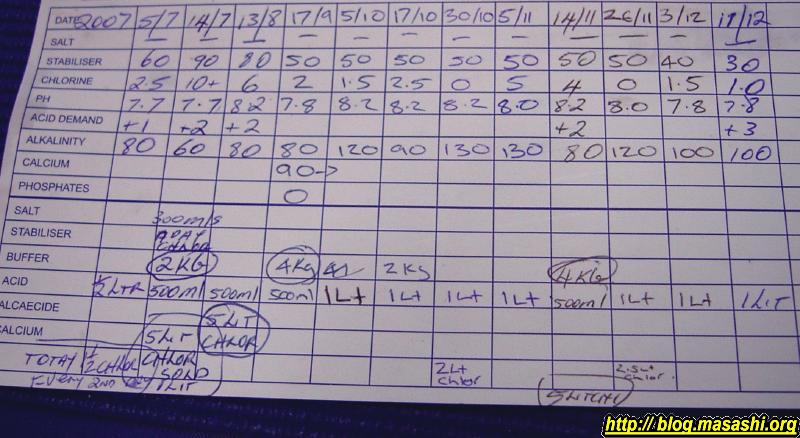 DATE 2007 5/7 14/7 13/8 17/9 5/10 17/10 30/10 5/11 14/11 26/11 3/12 17/12
SALT — — — — — — — — — — — —
STABILISER 60 90 80 50 50 50 50 50 50 50 40 30
CHLORINE 2.5 10+ 6 2 1.5 2.5 0 5 4 0 1.5 1.0
PH 7.7 7.7 8.2 7.8 8.2 8.2 8.2 8.0 8.2 8.0 7.8 7.8
ACID DEMAND +1 +2 +2 +2 +3
ALKALINITY 80 60 80 80 120 90 130 130 80 120 100 100
CALCIUM 90->
PHOSPHATES 0
SALT 300mls
STABILISER A DAY
CHLOR
BUFFER 2KG 4Kg 2Kg 4KG
ACID 1/2 LTR 500ml 500ml 500ml 1Lt 1Lt 1Lt 1Lt 500ml 1Lt 1Lt 1Lit
ALCAECIDE 5LIT
CALCIUM 5LIT CHLOR
TOTAY 1/2 CHLOR CHLOR 2Lt 2.5Lt
SPLD chlor chlor.
EVERY 2ND DAY 1LIT
http:// blog.masashi.org